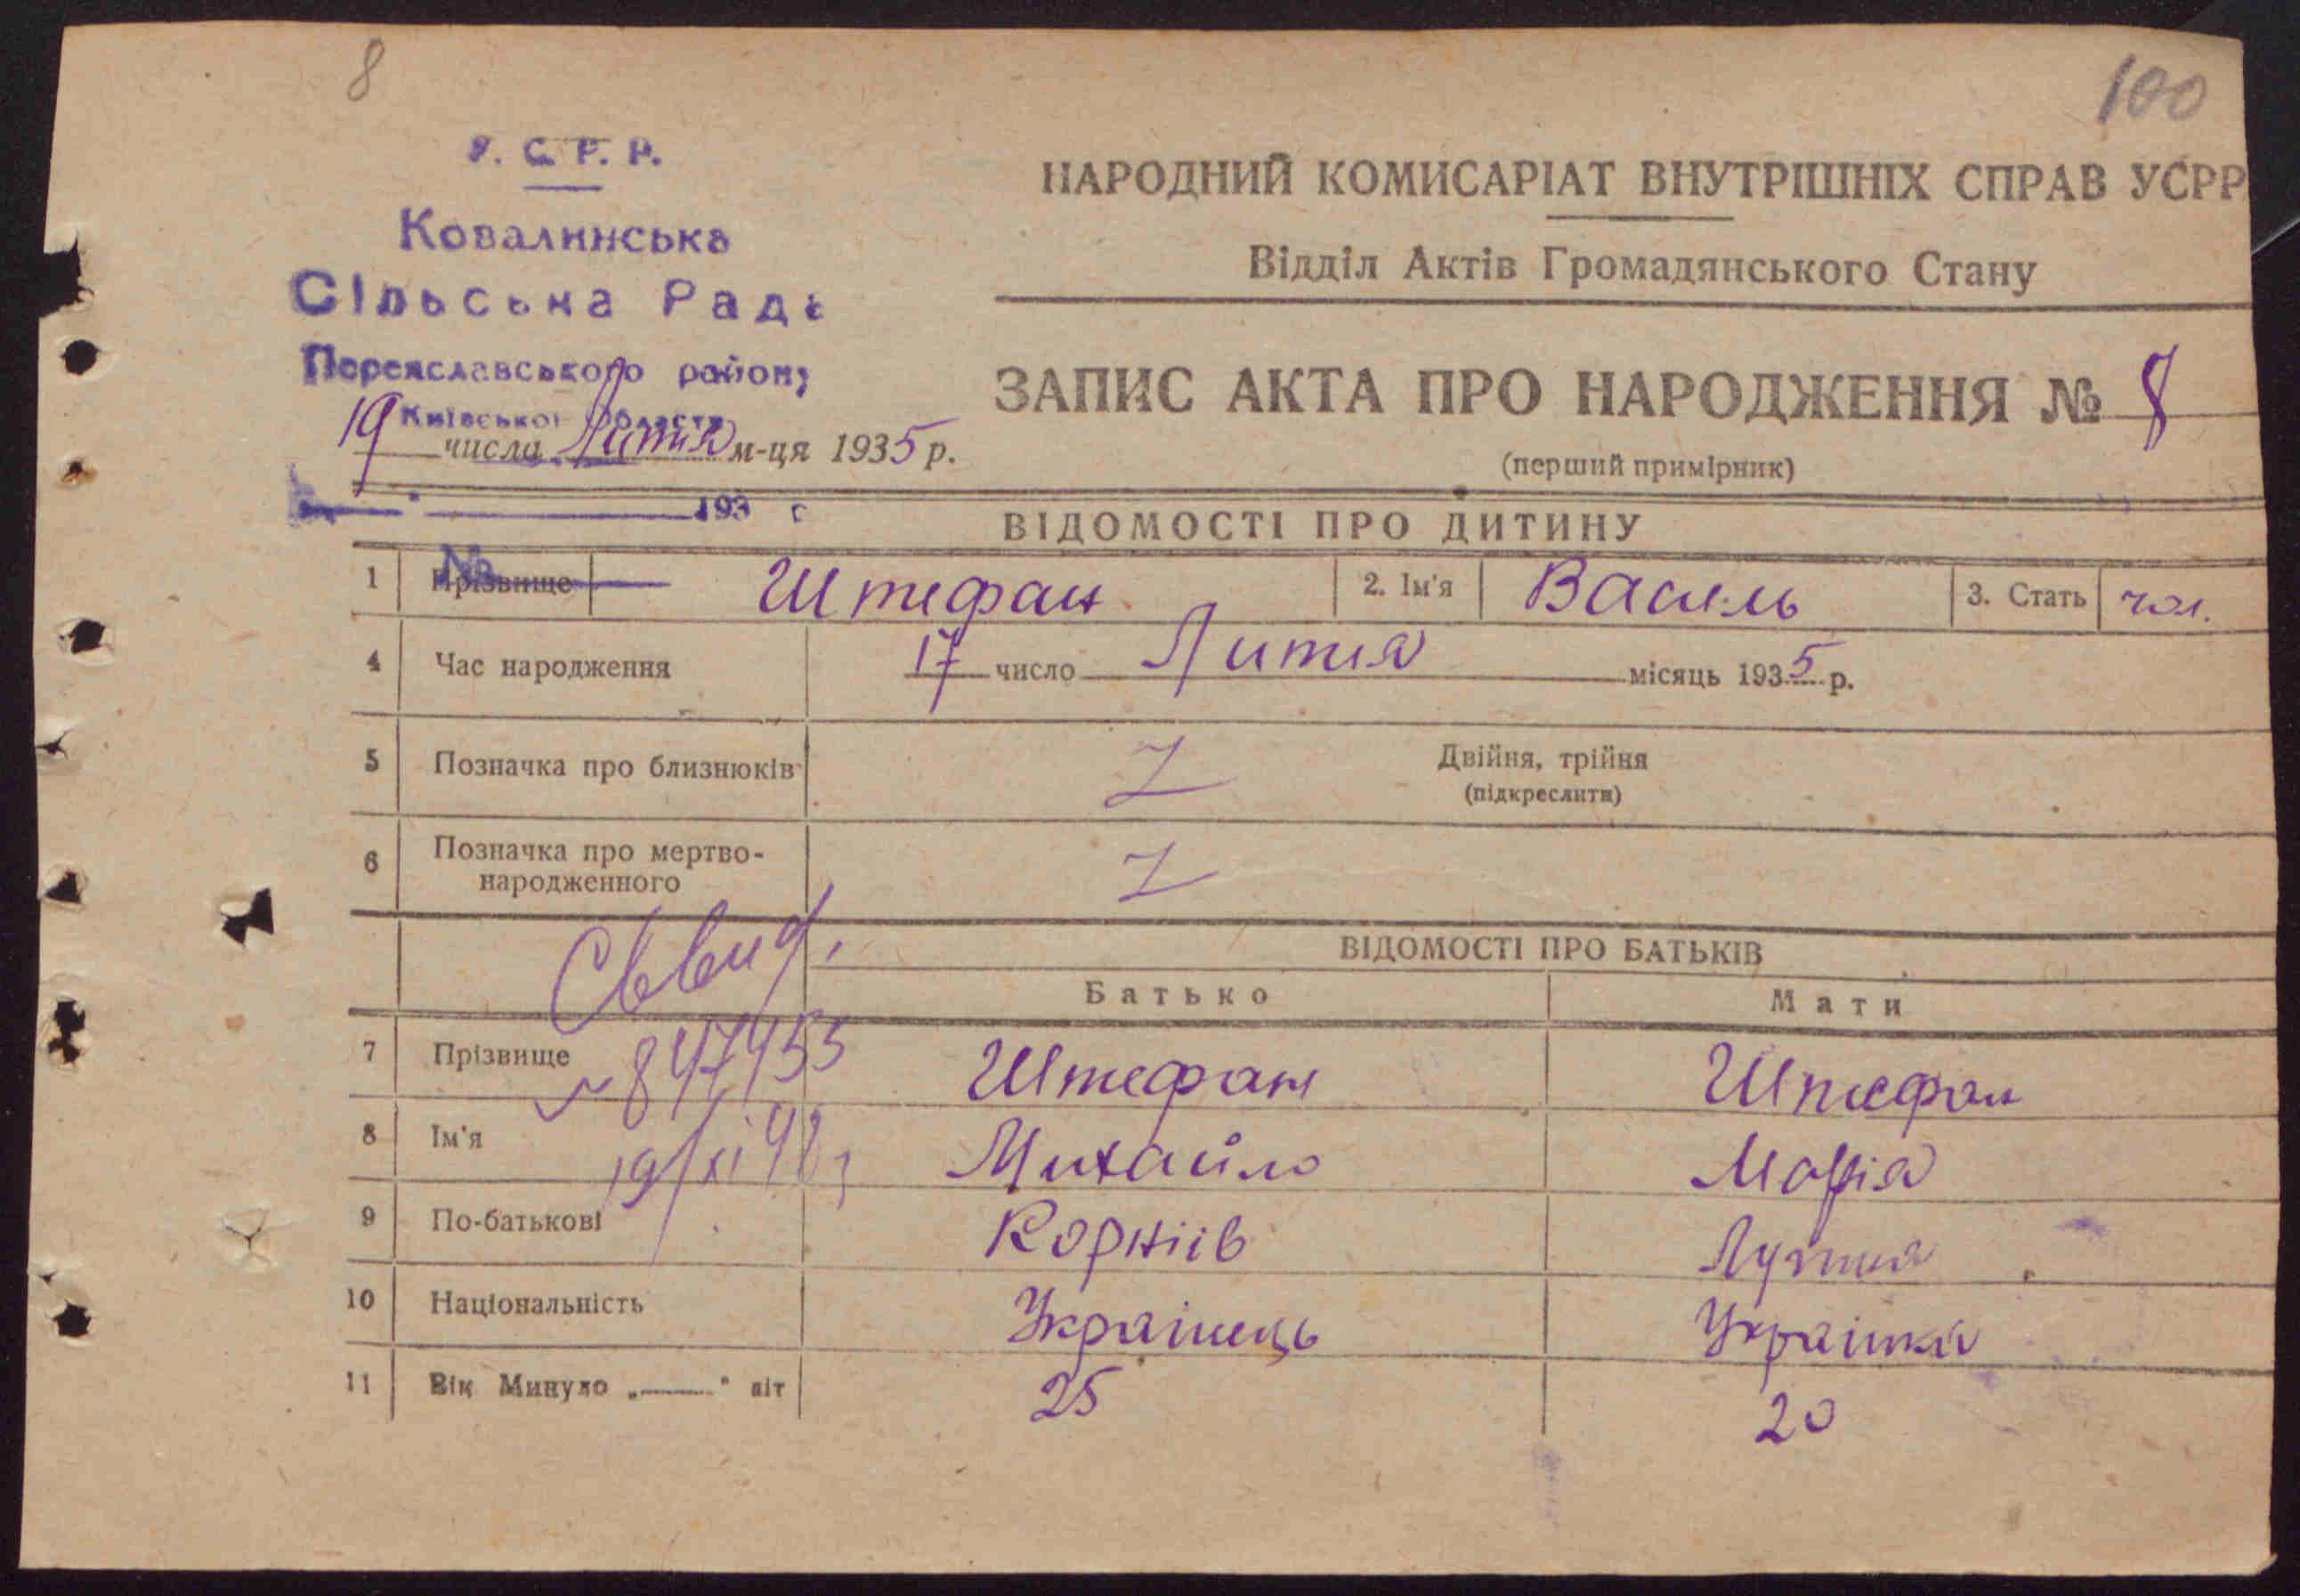 8
100
У. С. Р. Р.
Ковалинська
Сільська Рада
Переяславського району
Київської Області
19 числа Лютня м-ця 1935 р.
193 г
№
НАРОДНИЙ КОМИСАРІАТ ВНУТРІШНІХ СПРАВ УСРР
Відділ Актів Громадянського Стану
ЗАПИС АКТА ПРО НАРОДЖЕННЯ № 8
(перший примірник)
ВІДОМОСТІ ПРО ДИТИНУ
1 Прізвище Штефан 2. Ім'я Василь 3. Стать чол.
4 Час народження 17 число Лютня місяць 1935 р.
5 Позначка про близнюків Z Двійня, трійня
(підкреслити)
6 Позначка про мертво-
народженного Z
ВІДОМОСТІ ПРО БАТЬКІВ
Батько Мати
7 Прізвище Штефан Штефан
8 Ім'я Михайло Марія
9 По-батькові Корніїв
10 Національність Українець Українка
11 Вік Минуло „——" літ 25 20
847455